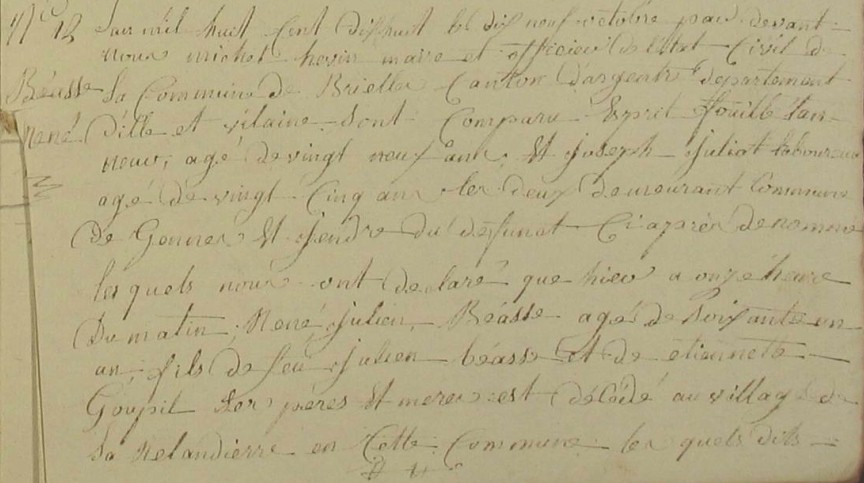 N° 12 Lan mil huit Cent dixhuit le dix neuf octobre par devant
nous michel hevin maire et officier de letat Civil de
Béasse la Commune de Brielles Canton dargentré departement
René Dille et vilaine Sont Comparu Esprit fouillé tan-
neur, agé de vingt neuf ans, Et joseph juliot laboureur
agé de vingt Cinq ans les deux demeurant Commune
de Gennes Et gendre du defunt Ci après denommé
les quels nous ont declaré que hier a onze heure
Du matin, René julien Béasse agé de Soixante un
an, fils de feu julien béasse et de etiennette
Goupil Ses peres Et meres est décédé au village de
la Relandierre en Cette Commune les quels dits